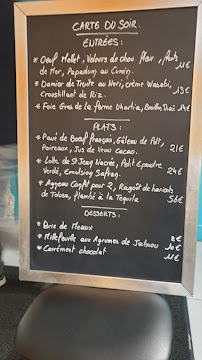 CARTE DU SOIR.
ENTRÉES:
* Oeuf Mollet, Velours de chou fleur, fruits
de Mer, Papadum au Cumin. 11€
* Damier de Truite au Nori, crème Wasabi,
Croustillant de Riz. 13€
* Foie Gras de la ferme Uhartia, Bouillon Thaï 14€
PLATS:
* Pavé de Boeuf français, Gâteau de Pdt,
Poireaux, Jus de Veau Cacao. 21€
* Lotte de St Jean Nacrée, Petit Epeautre
Verdé, Emulsion Safran. 24€
* Agneau Confit pour 2, Ragoût de haricots
de Tolosa, flambé à la Tequila 56€
DESSERTS:
* Brie de Meaux 8€
* Millefeuille aux Agrumes de 10€
* Carrément chocolat 11€